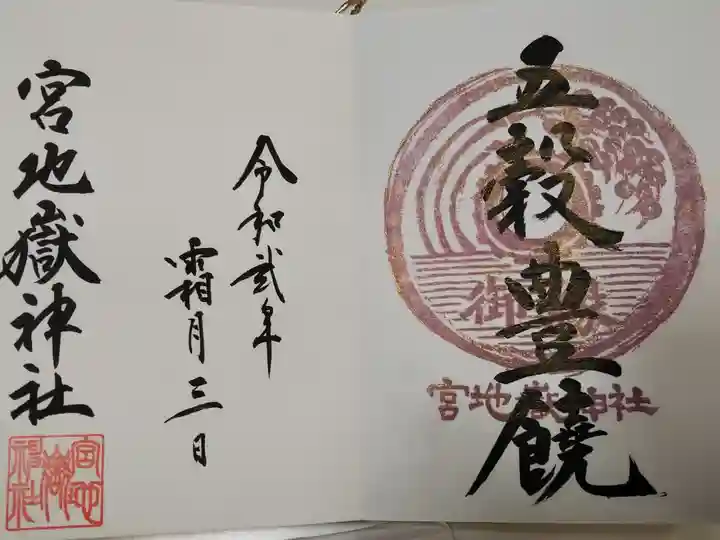 五穀豊饒
御
宮地嶽神社
令和弐年
霜月三日
宮地嶽神社
宮地嶽神社